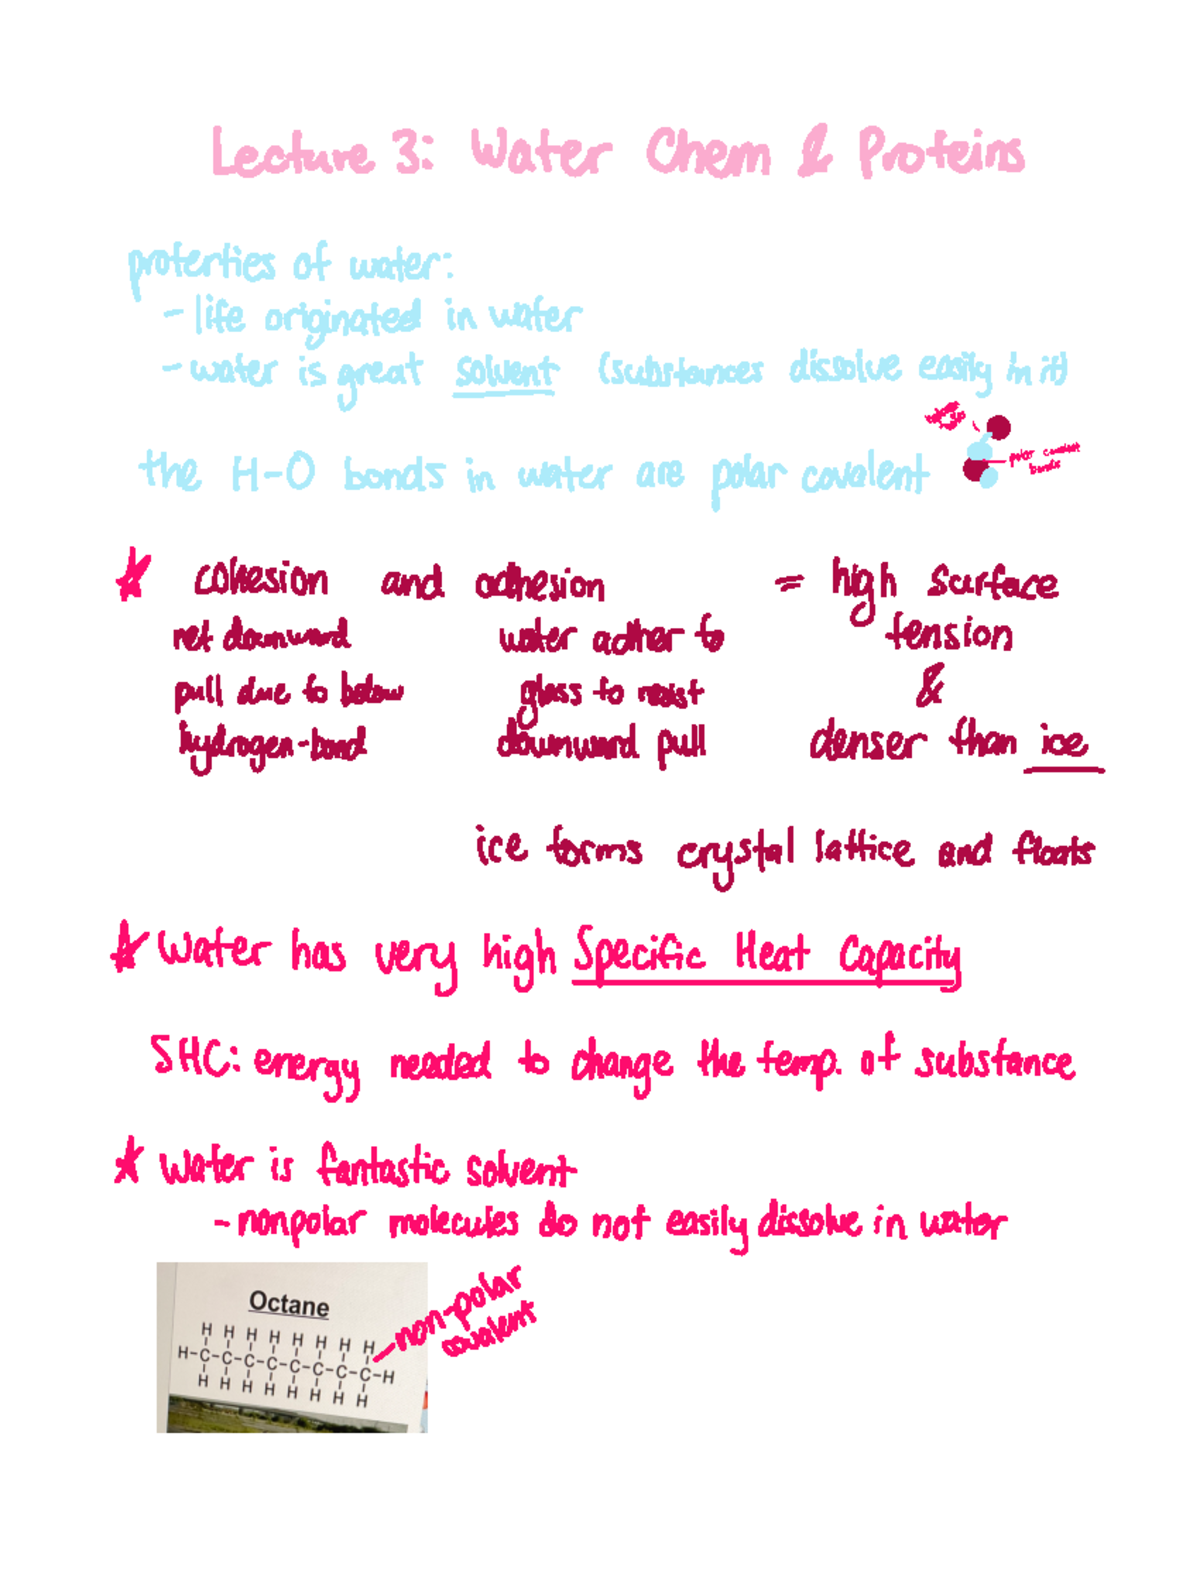 Lecture 3: Water Chem & Proteins
properties of water:
- life originated in water
- water is great solvent (substances dissolve easily in it)
polar covalent
bonds
the H-O bonds in water are polar covalent
cohesion and adhesion = high surface
net downward water adher to tension
pull due to below glass to resist &
hydrogen-bond downward pull denser than ice
ice forms crystal lattice and floats
Water has very high Specific Heat Capacity
SHC: energy needed to change the temp. of substance
Water is fantastic solvent
- nonpolar molecules do not easily dissolve in water
Octane
non-polar
covalent
H H H H H H H H
H-C-C-C-C-C-C-C-C-H
H H H H H H H H